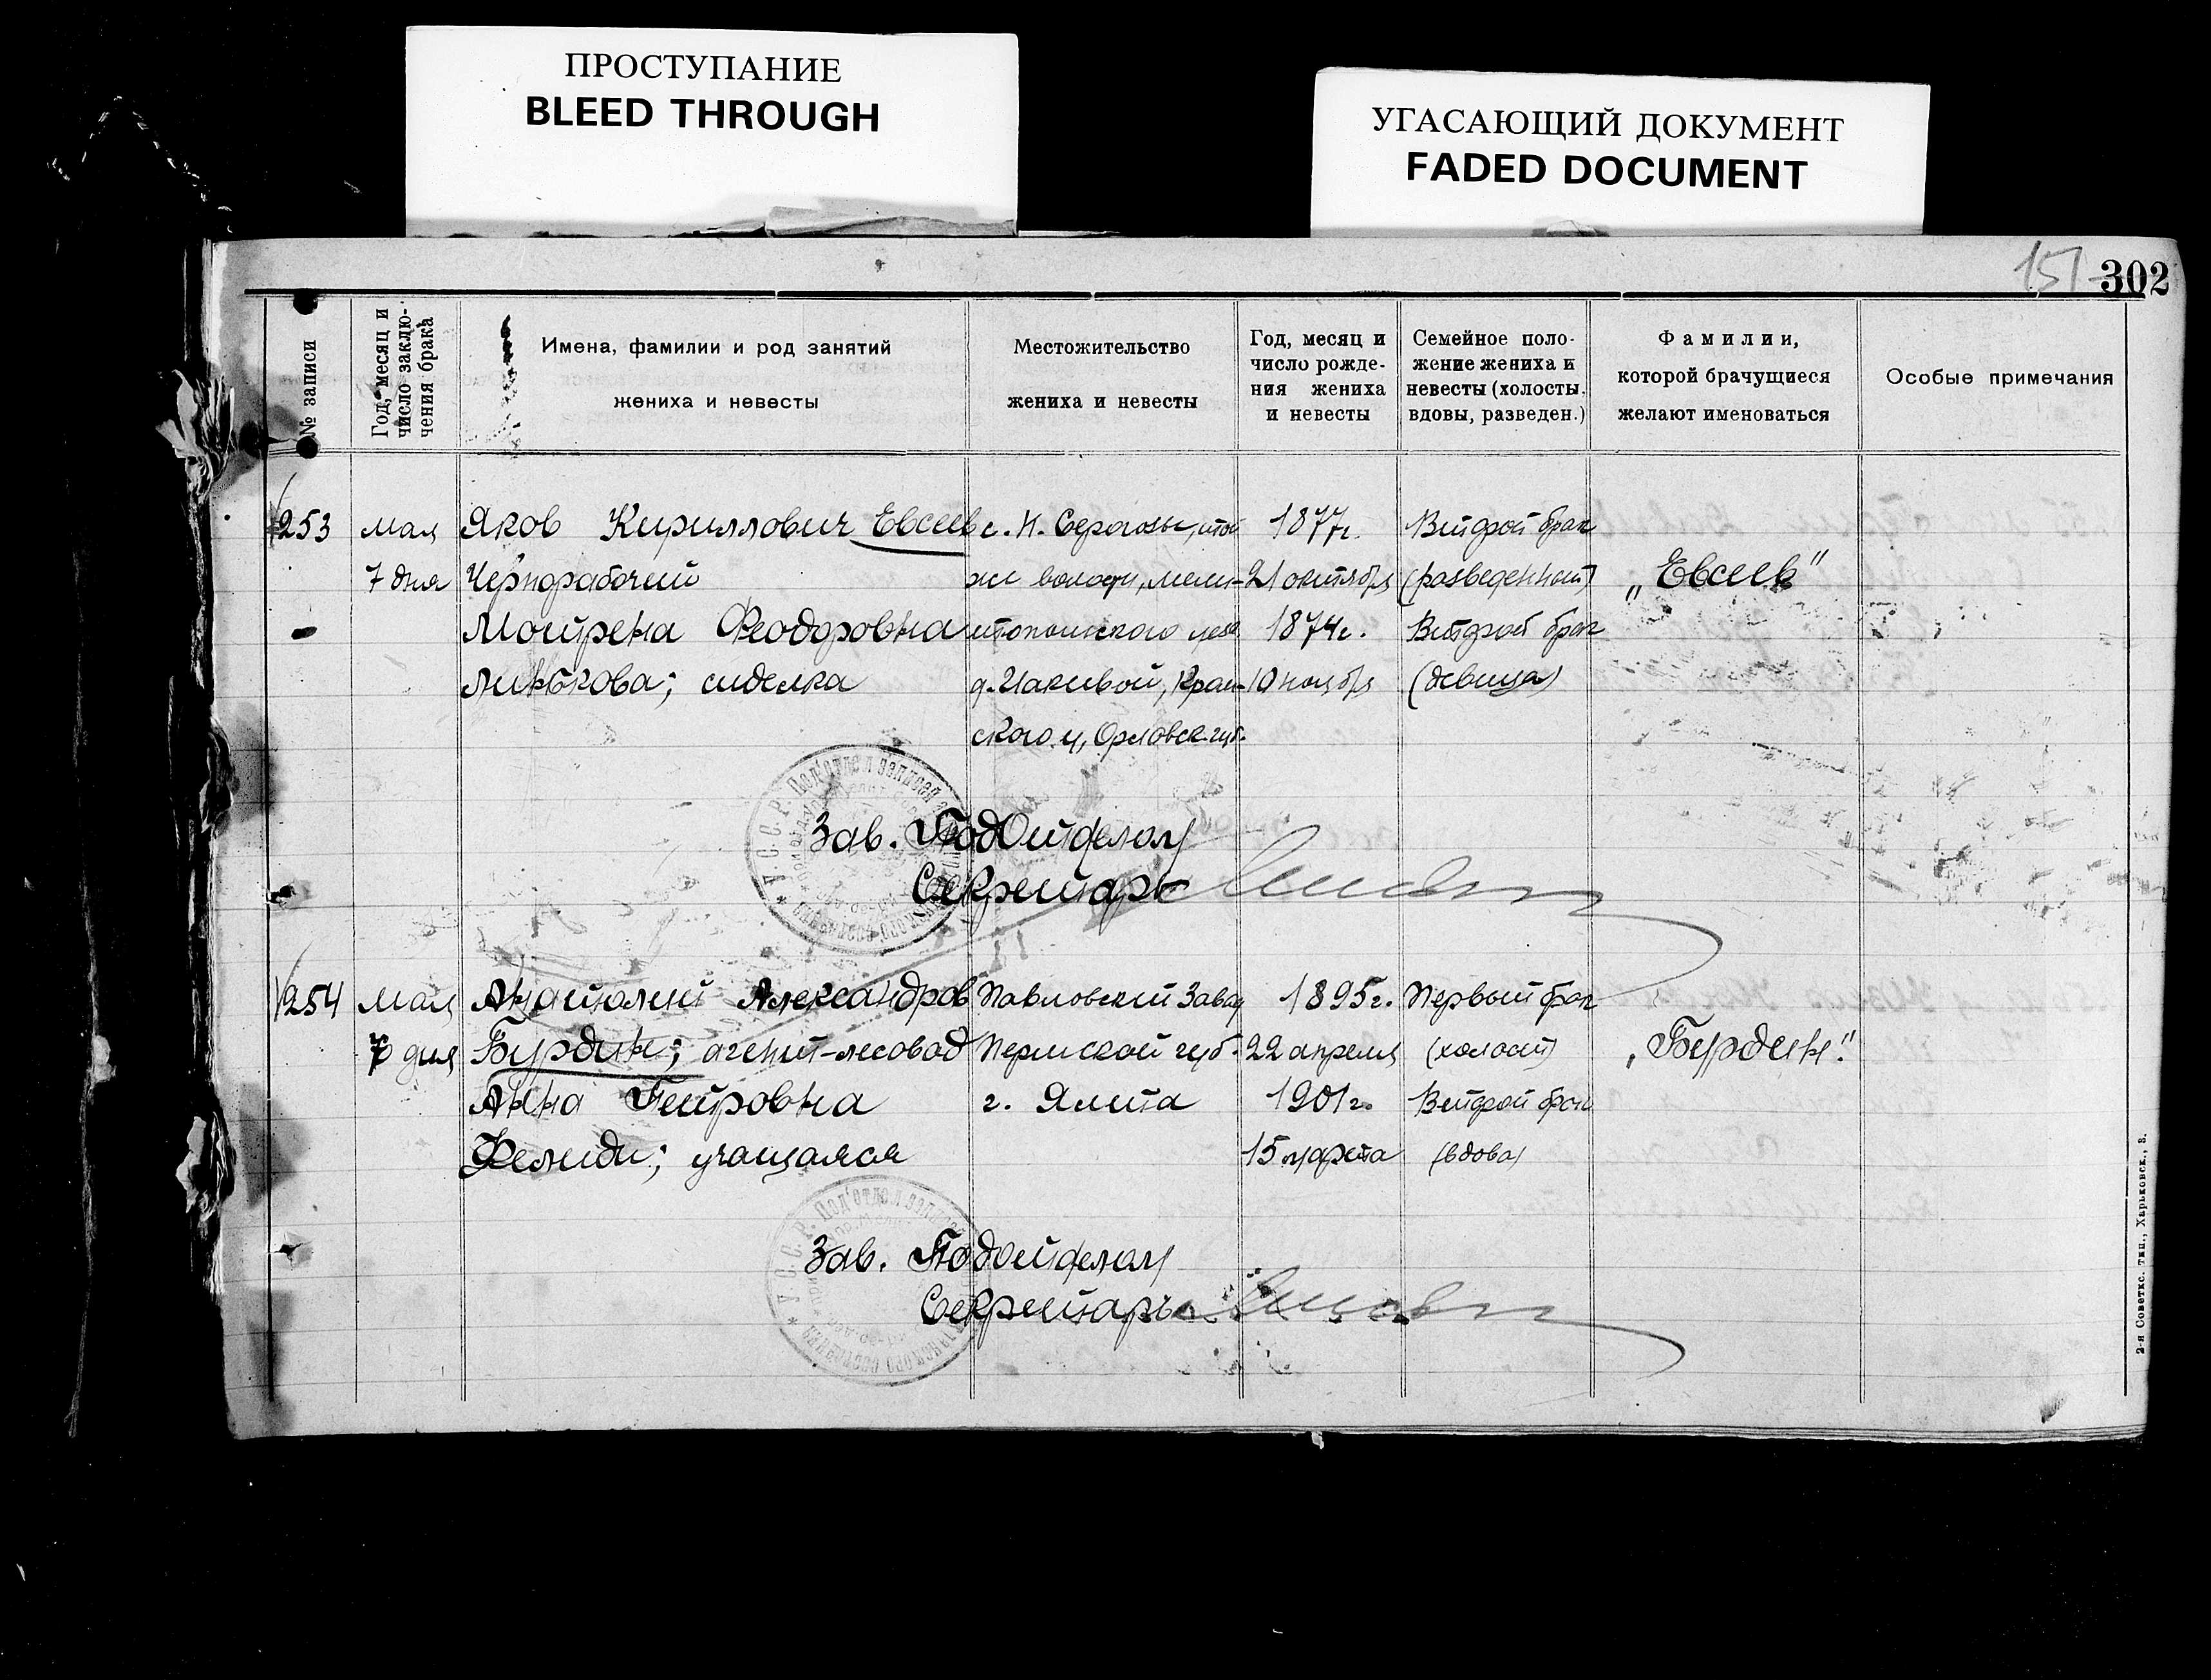 ПРОСТУПАНИЕ
BLEED THROUGH
УГАСАЮЩИЙ ДОКУМЕНТ
FADED DOCUMENT
151 302
№ записи
Год, месяц и число заклю-
чения брака
Имена, фамилии и род занятий
жениха и невесты
Местожительство
жениха и невесты
Год, месяц и
число рожде-
ния жениха
и невесты
Семейное поло-
жение жениха и
невесты (холосты,
вдовы, разведен.)
Фамилии,
которой брачущиеся
желают именоваться
Особые примечания
253 мая Яков Кириллович Евсеев с. Н. Серогозы, той 1877г. Второй брак
7 дня Чернорабочий же волости, мели- 21 октября (разведенный) „Евсеев"
Матрена Феодоровна топольского уез 1874г. Второй брак
Линькова; сиделка 10 ноября (девица)
ского у, Орловск. губ.
Зав. ПодОтделом
Секретарь
254 мая Анатолий Александров Павловский Завод 1895г. Первый брак
7 дня Бурдин; агент-лесовод Пермской губ. 22 апреля (холост) „Бурдин"
Анна Петровна г. Ялта 1901г. Второй брак
Фелиди; учащаяся 15 марта (вдова)
Зав. Подотделом
Секретарь
У.С.С.Р. Под'отдел записей
2-я Советск. тип., Харьковск., 3.